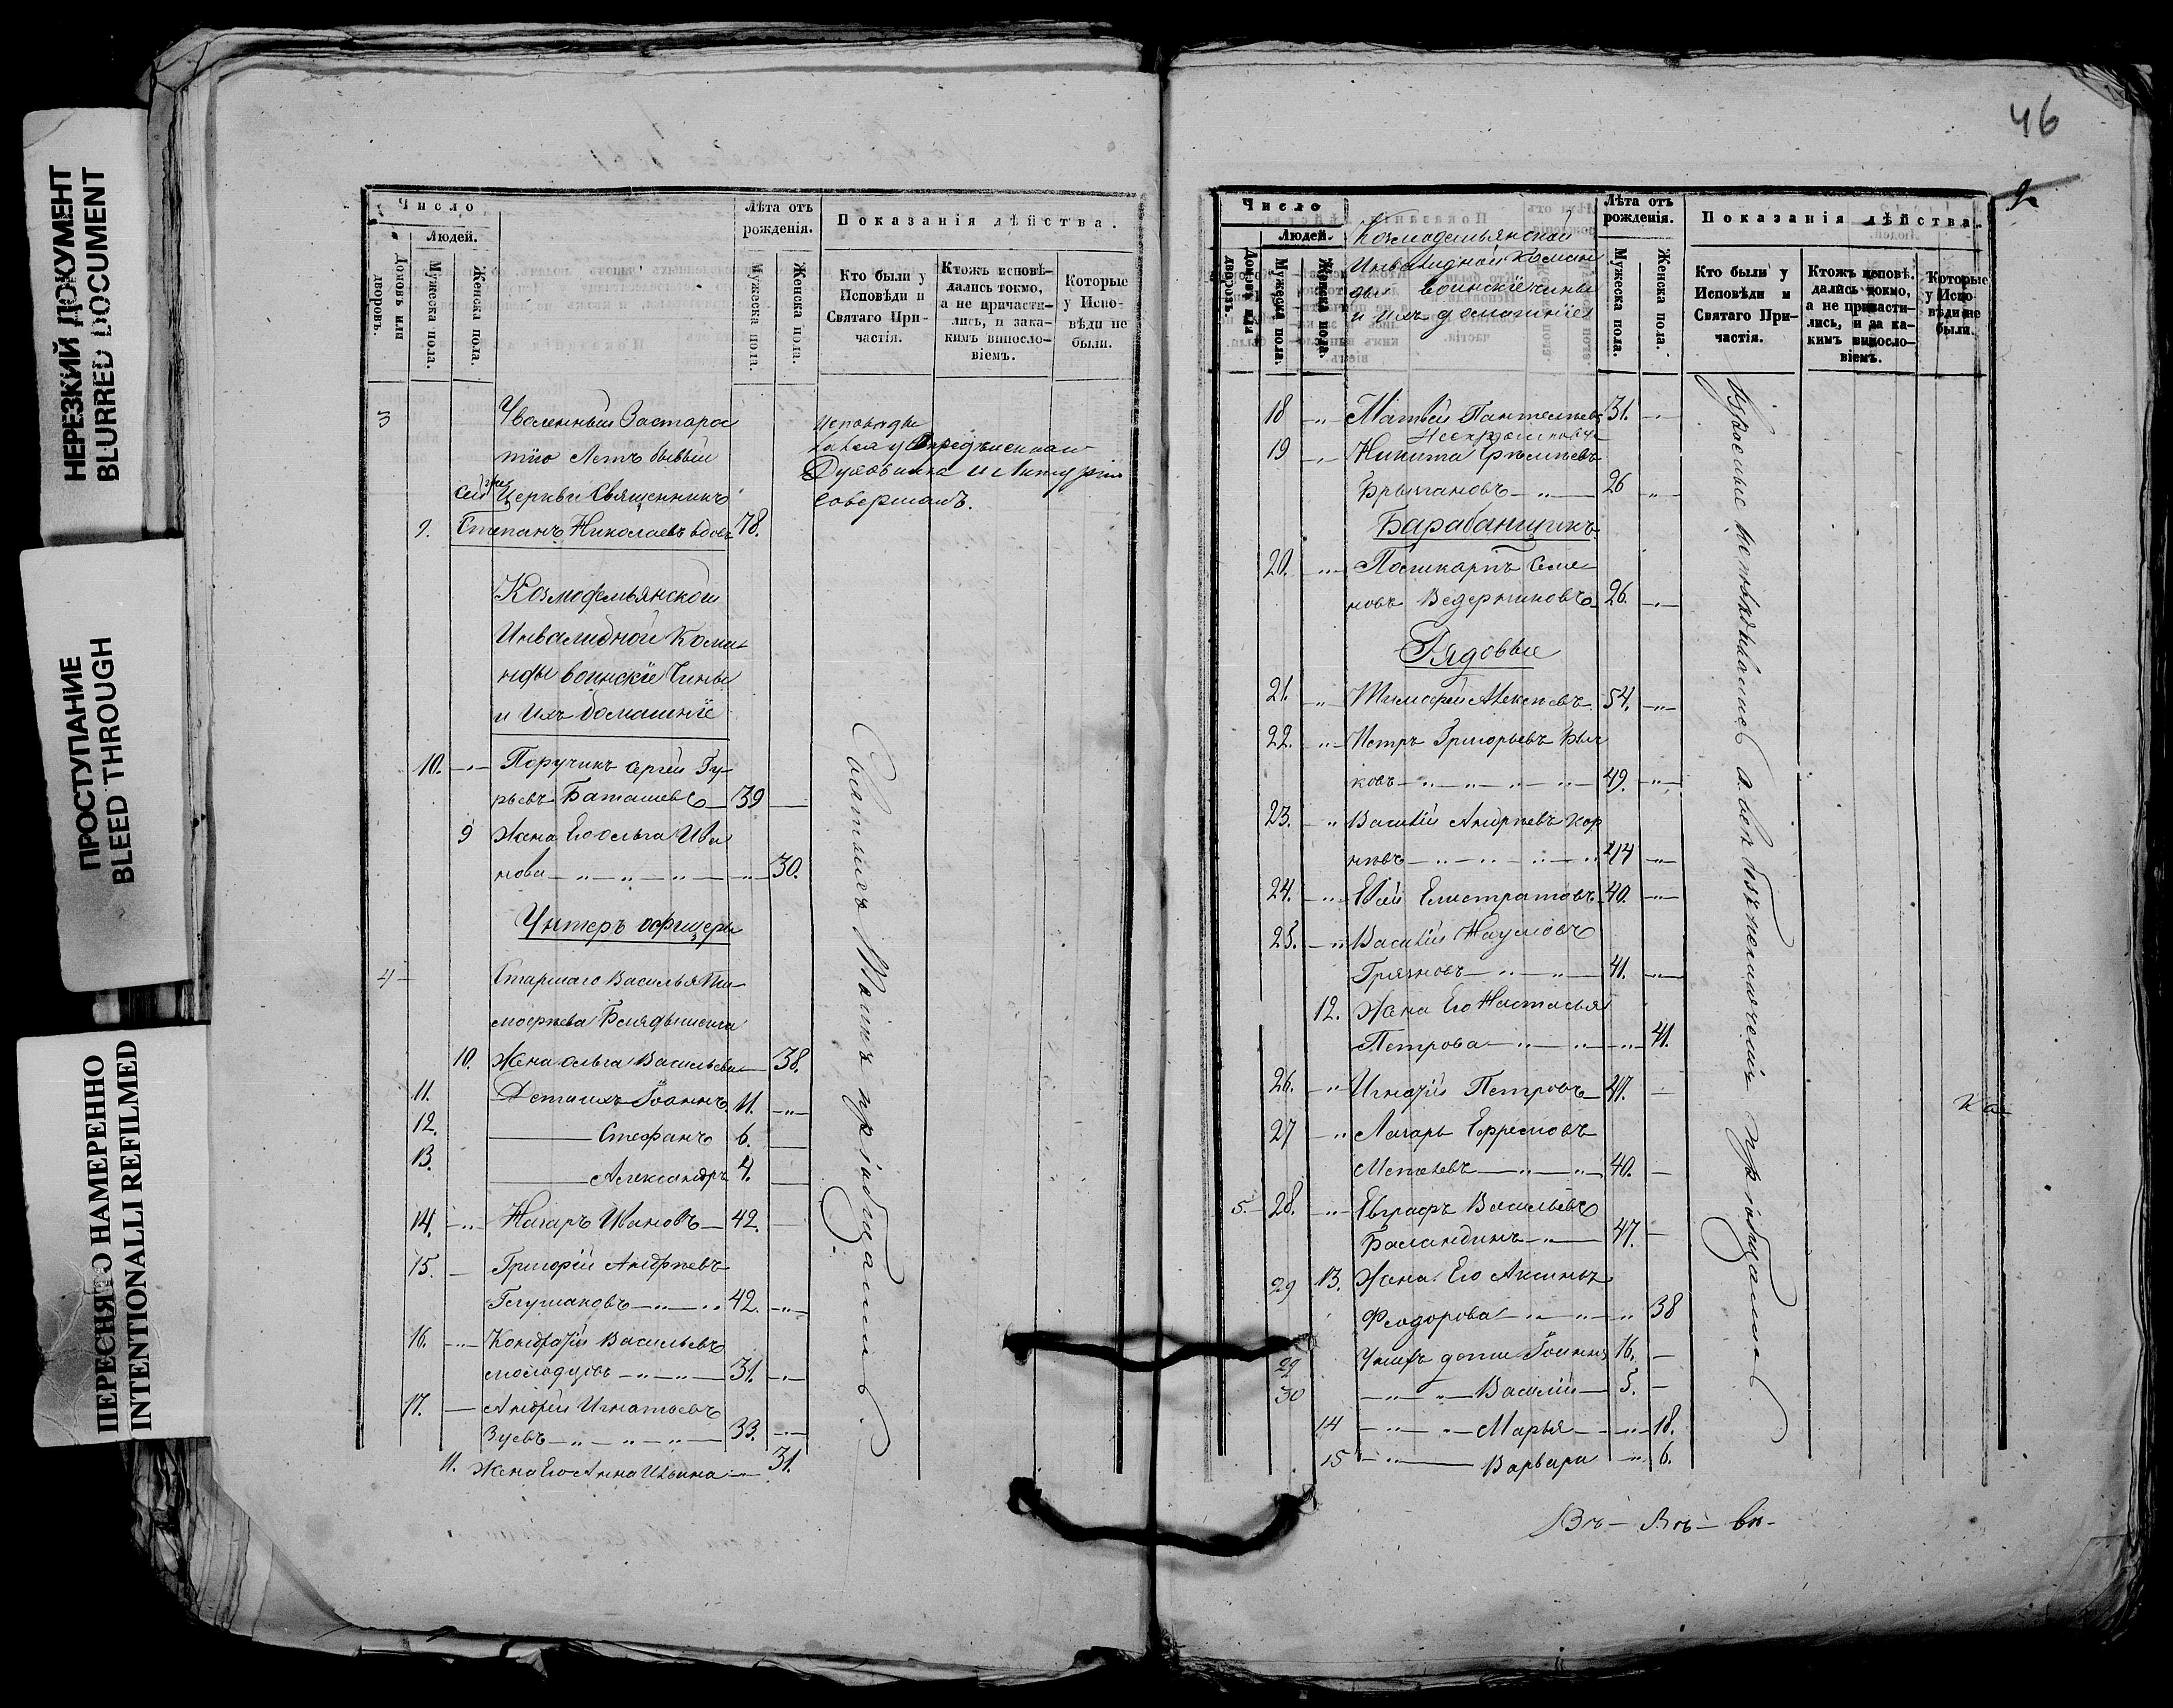 НЕРЕЗКИЙ ДОКУМЕНТ
BLURRED DOCUMENT
ПРОСТУПАНИЕ
BLEED THROUGH
ПЕРЕСНЯТО НАМЕРЕННО
INTENTIONALLI REFILMED
Число
Людей.
Домовъ или дворовъ.
Мужеска пола.
Женска пола.
Лѣта отъ рожденія.
Мужеска пола.
Женска пола.
Показанія дѣйства.
Кто были у Исповѣди и Святаго Причастія.
Ктожъ исповѣдались токмо, а не причастились, и за какимъ винословіемъ.
Которые у Исповѣди не были.
3 Уволенный Застарос
тію Летъ бывый
сей Церкви Священникъ
9. Степанъ Николаевъ вдовъ 78.
Духовника и Литургію
совершалъ.
Козмодемьянской
Инвалидной Кома
нды воинскіе Чины
и Ихъ домашніе
10. Поручикъ Сергей Гу-
рьевъ Баташевъ 39
9 Жена Его Ольга Ива
нова 30.
Унтеръ офицеры
4 Старшаго Василья Ти-
мофеева
10. Жена Ольга Васильева 38.
11. Дети ихъ Іоаннъ 11.
12. Стефанъ 6.
13. Александръ 4.
14. Назаръ Ивановъ 42.
15. Григорій Андреевъ
Глушаковъ 42.
16. Кондратій Васильевъ
Молодцовъ 31.
17. Андрей Игнатьевъ
Зуевъ 33.
11. Жена Его Анна Ильина 31.
46
9.
Число
Людей.
Домовъ или дворовъ.
Мужеска пола.
Женска пола.
Козмодемьянской
Инвалидной Коман
ды воинскіе чины
и Ихъ домашніе
Лѣта отъ рожденія.
Мужеска пола.
Женска пола.
Показанія дѣйства.
Кто были у Исповѣди и Святаго Причастія.
Ктожъ исповѣдались токмо, а не причастились, и за какимъ винословіемъ.
Которые у Исповѣди не были.
18 Матвей Пантелеевъ 31.
19 Никита
26
Барабанщикъ
20. Поликарпъ Семе
новъ Ведерниковъ 26.
Рядовые
21. Тимофей Алексеевъ 54.
22. Петръ Григорьевъ Бы
ковъ 49.
23. Василій Андреевъ Кор
неевъ 44
24. Елистратовъ 40.
25. Василій Наумовъ
Грязновъ 41.
12. Жена Его Настасья
Петрова 41.
26. Игнатій Петровъ 47.
27 Лазарь Ефремовъ
40.
5. 28. Евграфъ Васильевъ
Баландинъ 47.
29 13. Жена Его Аксинья
Феодорова 38
29 У нихъ дети Іоаннъ 16.
30 Василій 5.
14 Марья 18.
15 Варвара 6.